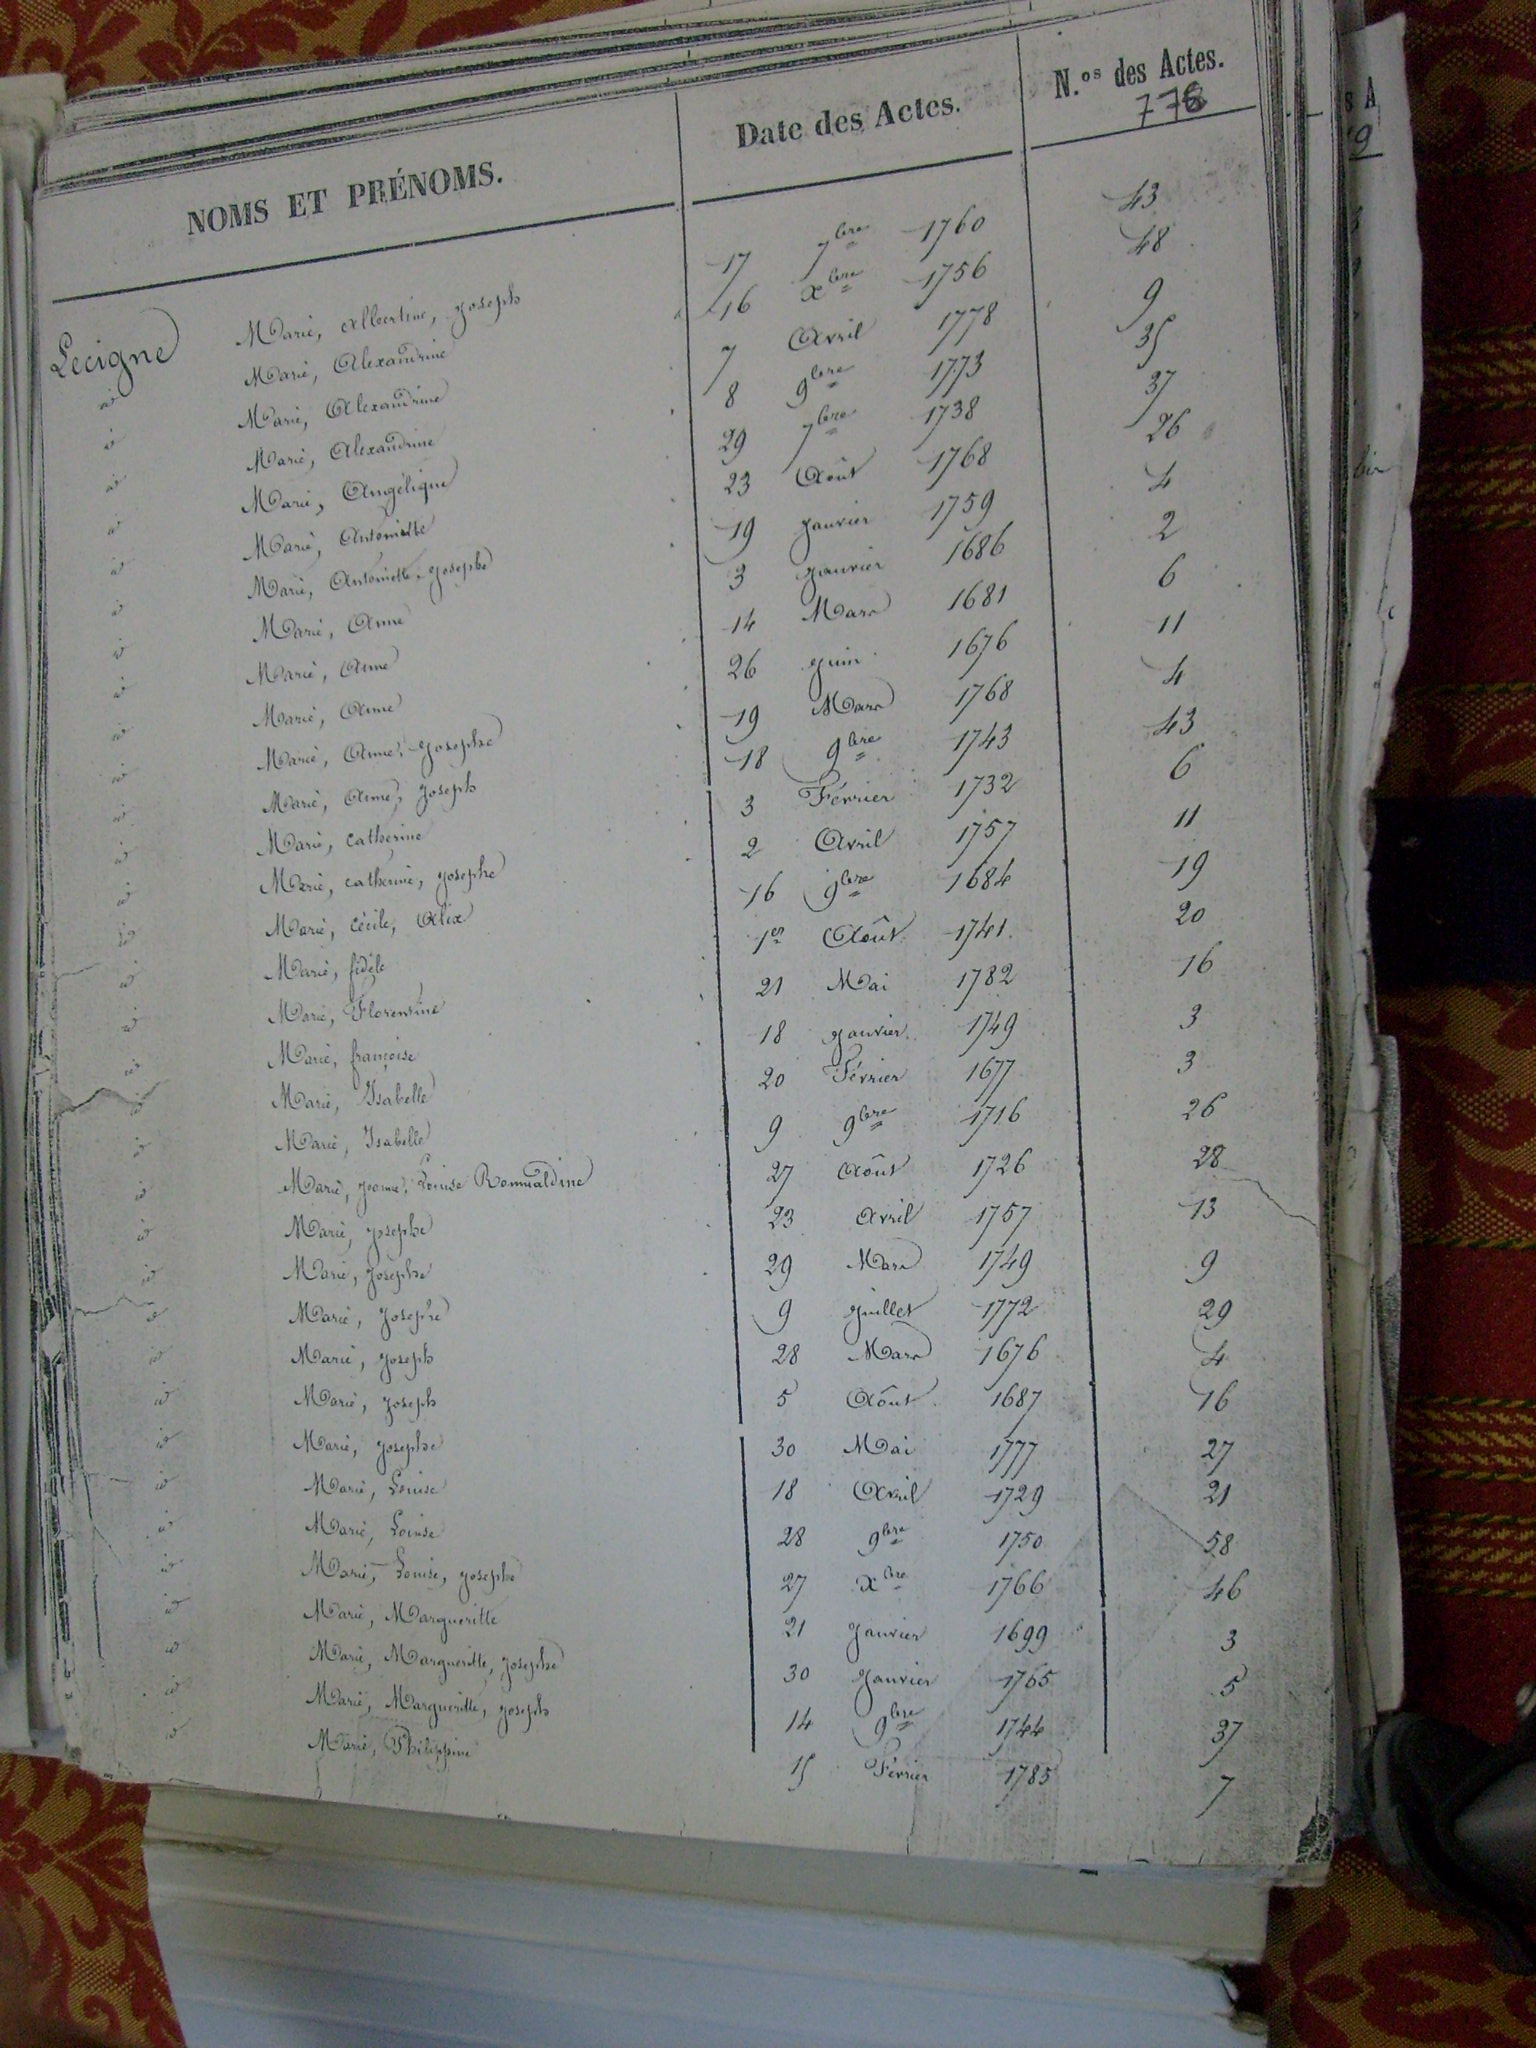 NOMS ET PRÉNOMS. Date des Actes. N.os des Actes.
776
Lecigne Marie, Albertine, Joseph 17 7bre 1760 43
id Marie, Alexandrine 16 Xbre 1756 48
id Marie, Alexandrine 7 Avril 1778 9
id Marie, Alexandrine 8 9bre 1773 35
id Marie, Angélique 29 7bre 1738 37
id Marie, Antoinette 23 Août 1768 26
id Marie, Antoinette Josephe 19 Janvier 1759 4
id Marie, Anne 3 Janvier 1686 2
id Marie, Anne 14 Mars 1681 6
id Marie, Anne 26 Juin 1676 11
id Marie, Anne, Josephe 19 Mars 1768 4
id Marie, Anne, Joseph 18 9bre 1743 43
id Marie, catherine 3 Février 1732 6
id Marie, catherine, Josephe 2 Avril 1757 11
id Marie, Cécile, Alix 16 9bre 1684 19
id Marie, fidèle 1er Août 1741 20
id Marie, Florentine 21 Mai 1782 16
id Marie, françoise 18 Janvier 1749 3
id Marie, Isabelle 20 Février 1677 3
id Marie, Isabelle 9 9bre 1716 26
id Marie, Jeanne, Louise Romualdine 27 Août 1726 28
id Marie, Josephe 23 Avril 1757 13
id Marie, Josephe 29 Mars 1749 9
id Marie, Josephe 9 Juillet 1772 29
id Marie, Joseph 28 Mars 1676 4
id Marie, Joseph 5 Août 1687 16
id Marie, Josephe 30 Mai 1777 27
id Marie, Louise 18 Avril 1729 21
id Marie, Louise 28 9bre 1750 58
id Marie, Louise, Josephe 27 Xbre 1766 46
id Marie, Margueritte 21 Janvier 1699 3
id Marie, Margueritte, Josephe 30 Janvier 1765 5
id Marie, Margueritte, Joseph 14 9bre 1744 37
id Marie, Philippine 15 Février 1785 7